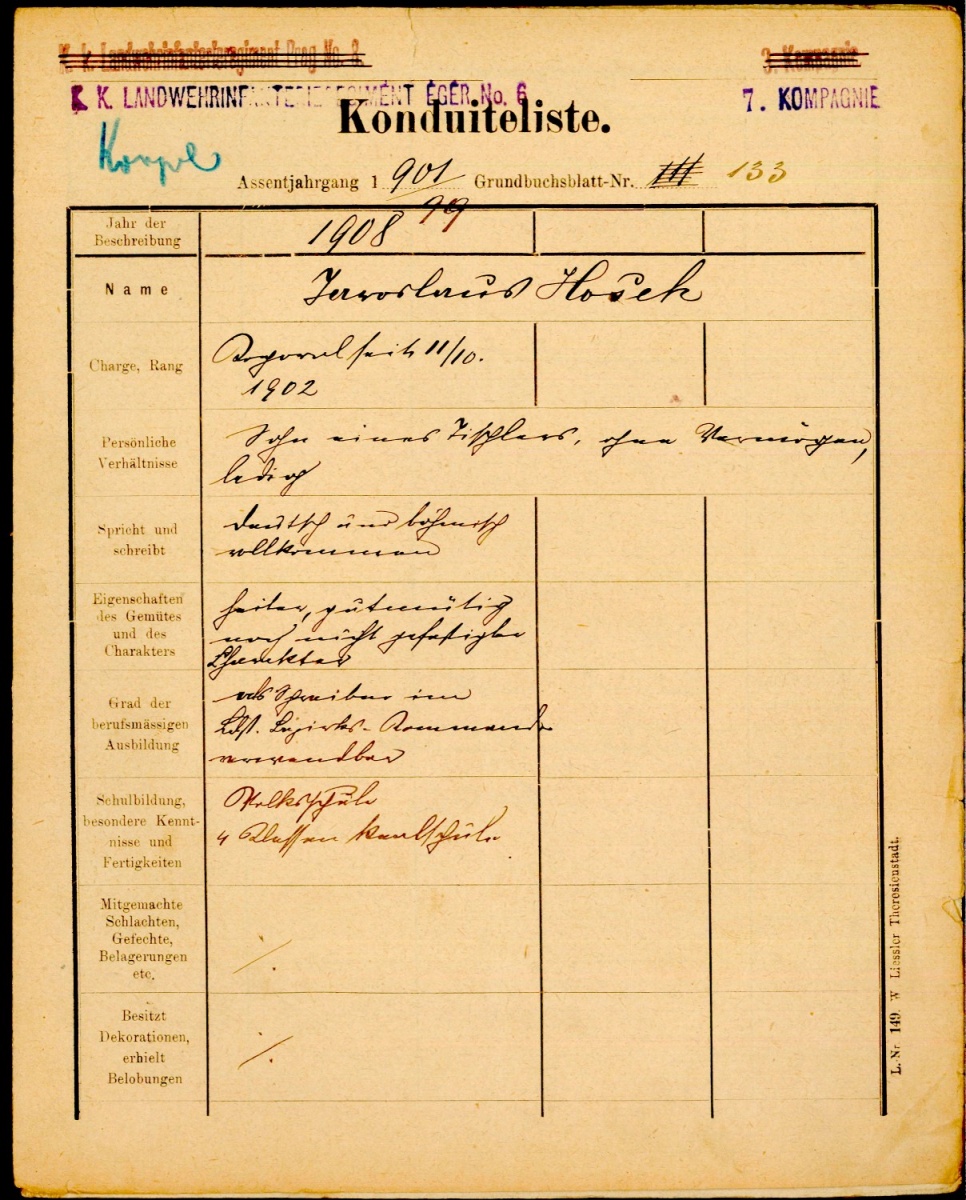 K. k. Landwehrinfanterieregiment Prag No. 8
3. Kompagnie
K. K. LANDWEHRINFANTERIEREGIMENT EGER No. 6
7. KOMPAGNIE
Konduiteliste.
Assentjahrgang 1901 Grundbuchsblatt-Nr. 133
99
Jahr der
Beschreibung
1908
Name
Jaroslaus Hosek
Charge, Rang
Korporal seit 11/10.
1902
Persönliche
Verhältnisse
Sohn eines Tischlers, ohne Vermögen,
ledig
Spricht und
schreibt
deutsch und böhmisch
vollkommen
Eigenschaften
des Gemütes
und des
Charakters
heiter, gutmütig
noch nicht gefestigter
Charakter
Grad der
berufsmässigen
Ausbildung
als Schreiber im
Ldst. Bezirks-Kommando
verwendbar
Schulbildung,
besondere Kennt-
nisse und
Fertigkeiten
Volksschule
4 Klassen Realschule
Mitgemachte
Schlachten,
Gefechte,
Belagerungen
etc.
/.
Besitzt
Dekorationen,
erhielt
Belobungen
/.
L.-Nr 149. W Liessler Theresienstadt.